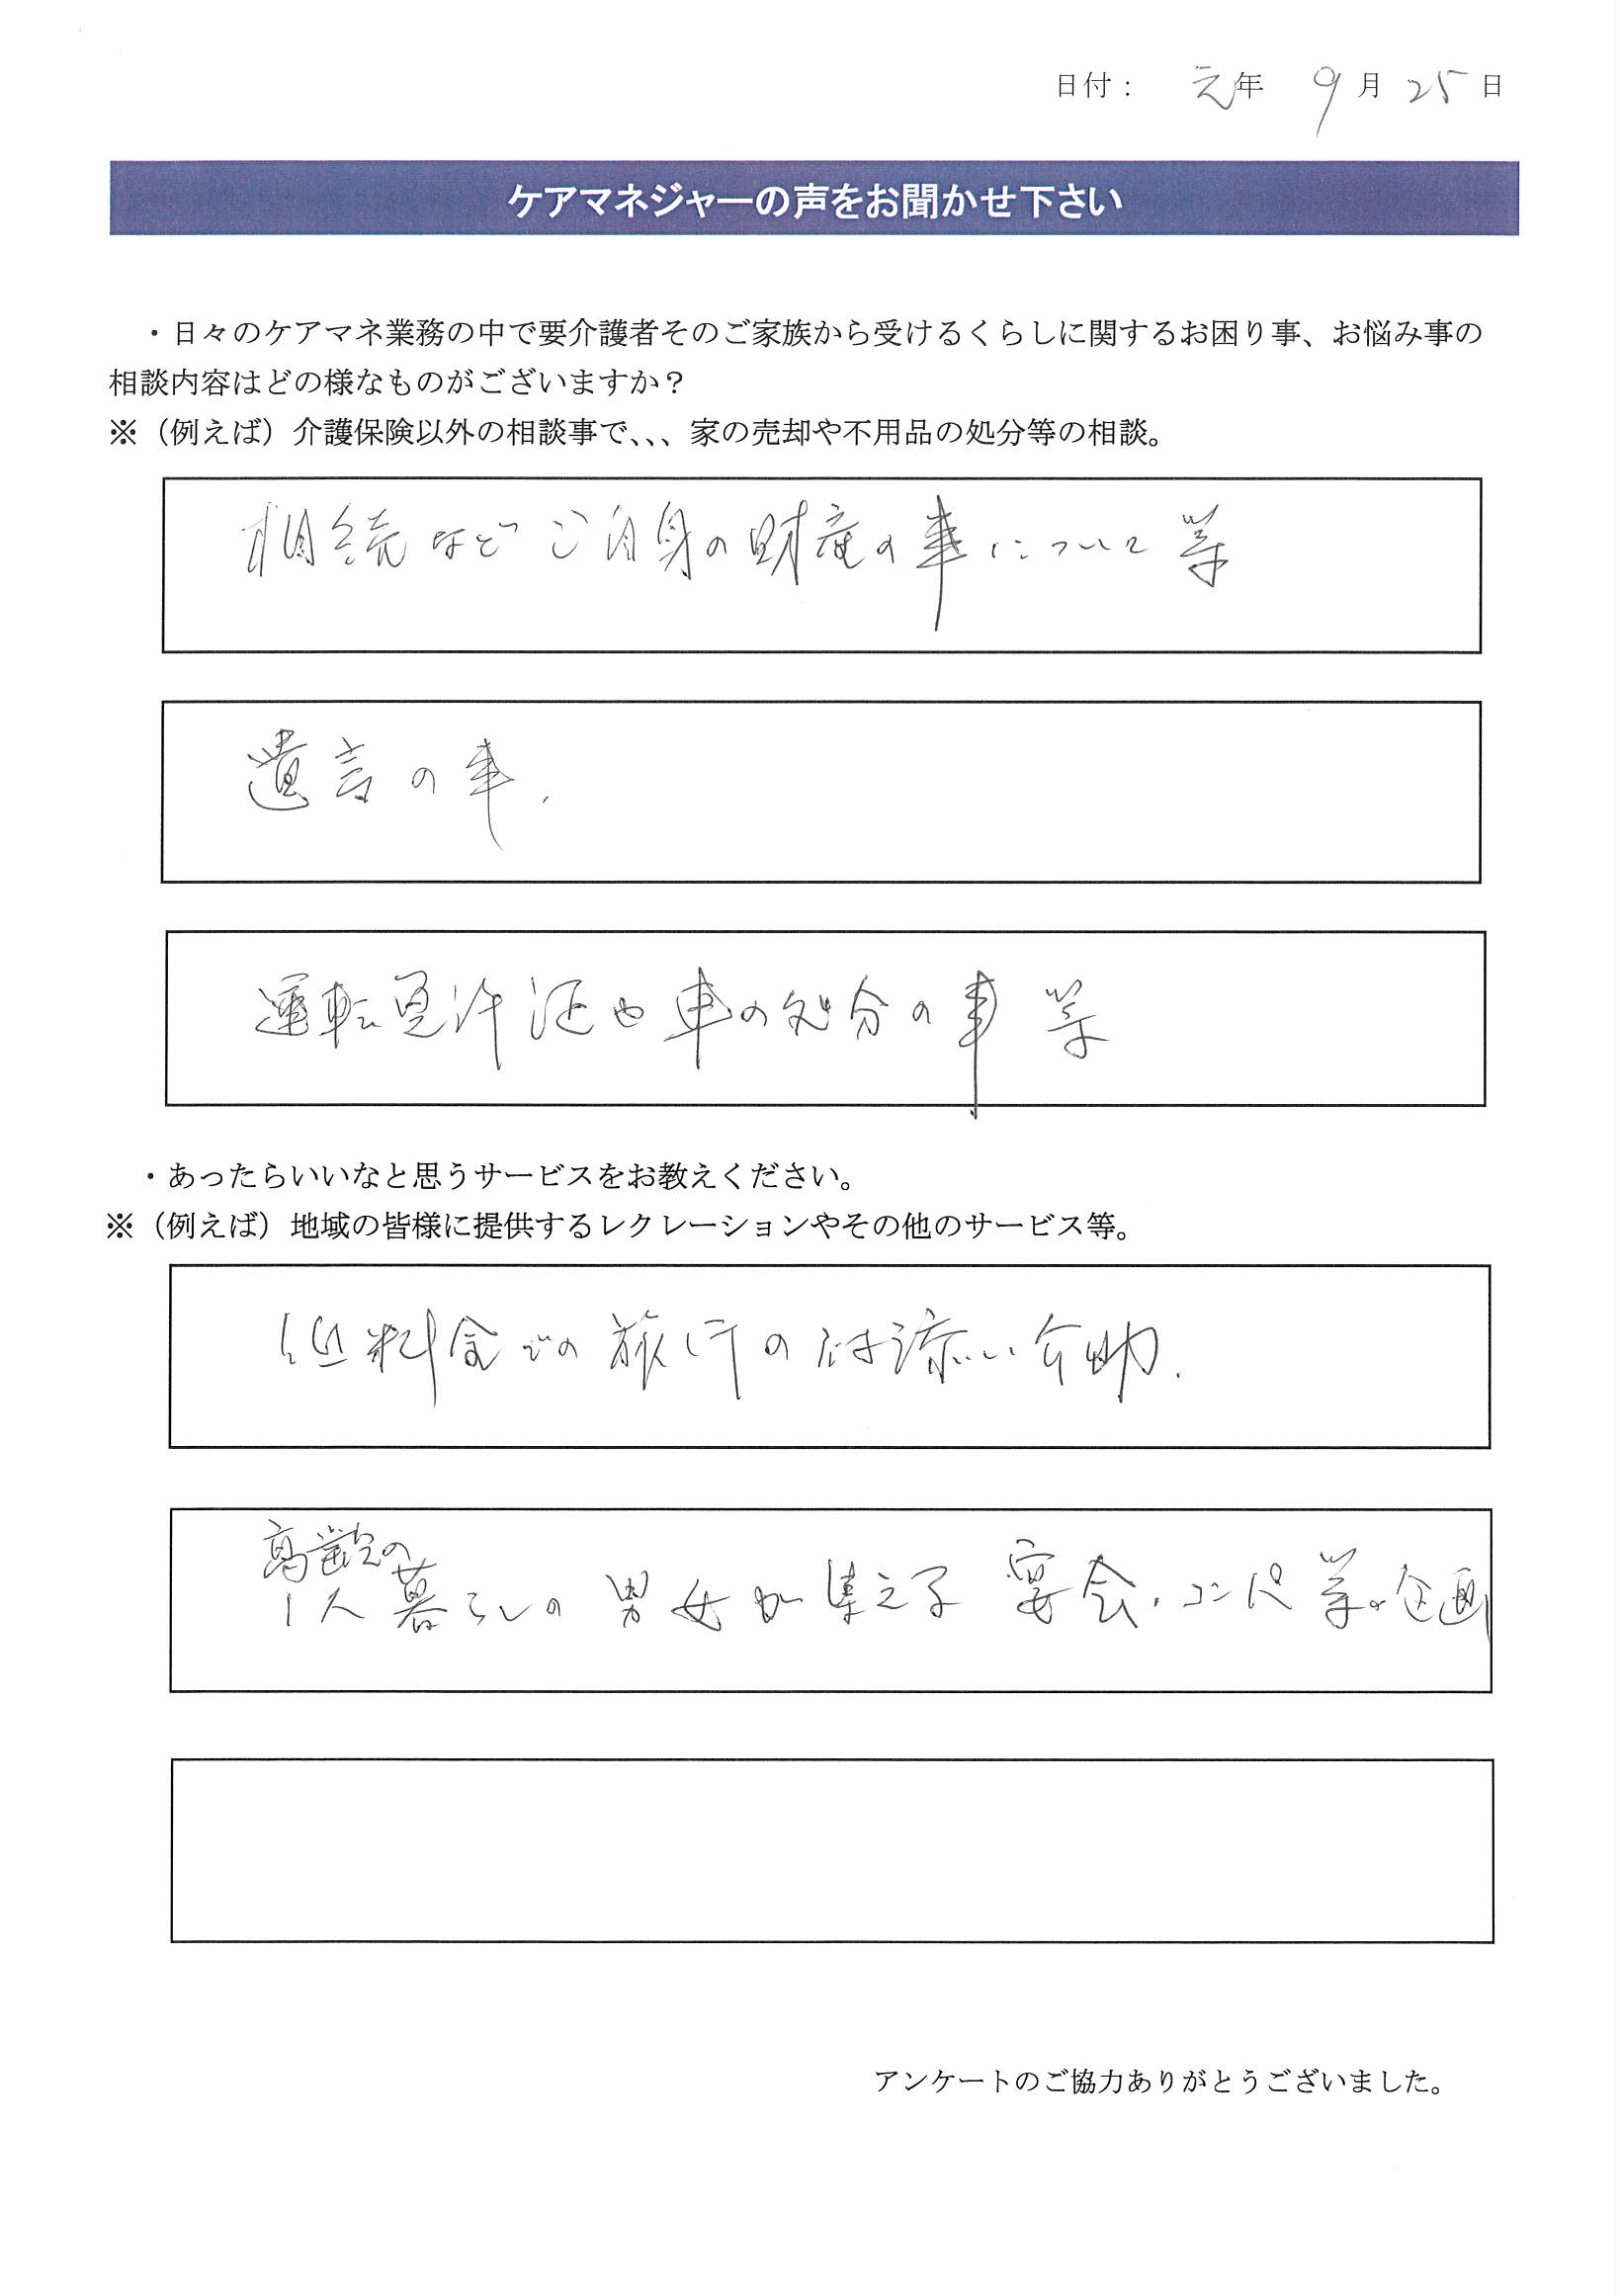 日付： 元年 9月 25日
ケアマネジャーの声をお聞かせ下さい
・日々のケアマネ業務の中で要介護者そのご家族から受けるくらしに関するお困り事、お悩み事の
相談内容はどの様なものがございますか？
※（例えば）介護保険以外の相談事で､､､、家の売却や不用品の処分等の相談。
相続などご自身の財産の事について等
遺言の事.
運転免許証や車の処分の事 等
・あったらいいなと思うサービスをお教えください。
※（例えば）地域の皆様に提供するレクレーションやその他のサービス等。
低料金での旅行の付添い介助.
高齢の
1人暮らしの男女が集える宴会、コンパ等の企画
アンケートのご協力ありがとうございました。